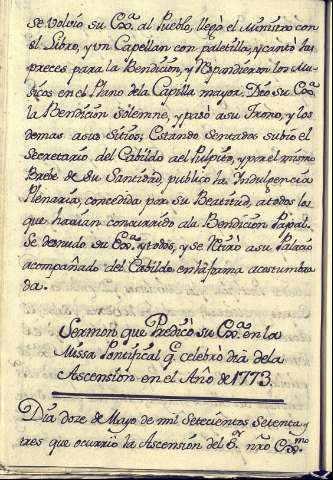 se volvio su Exª. al Pueblo, llegó el Ministro con
el Libro, y un Capellan con paletilla, y cantó las
preces para la Bendicion, y Respondieron los Mu-
sicos en el Plano de la Capilla mayor. Dio su Exª.
la Bendicion solemne, y pasó a su Trono, y los
demas a sus Sitios; Estando sentados subió el
Secretario del Cabildo a el Pulpito, y por el mismo
Brebe de su Santidad, publicó la Indulgencia
Plenaria, concedida por su Beatitud, a todos los
que havian concurrido a la Bendicion Papal.
Se desnudo su Exª. y todos, y se Retiró a su Palacio
acompañado del Cabildo en la forma acostumbra
da.
Sermon que Predicó su Exª. en la
Missa Pontifical q̃ celebró dia de la
Ascension en el Año de 1773.
Dia doze de Mayo de mil Setecientos Setenta y
tres que ocurrio la Ascension del Sr. nrõ Exmo